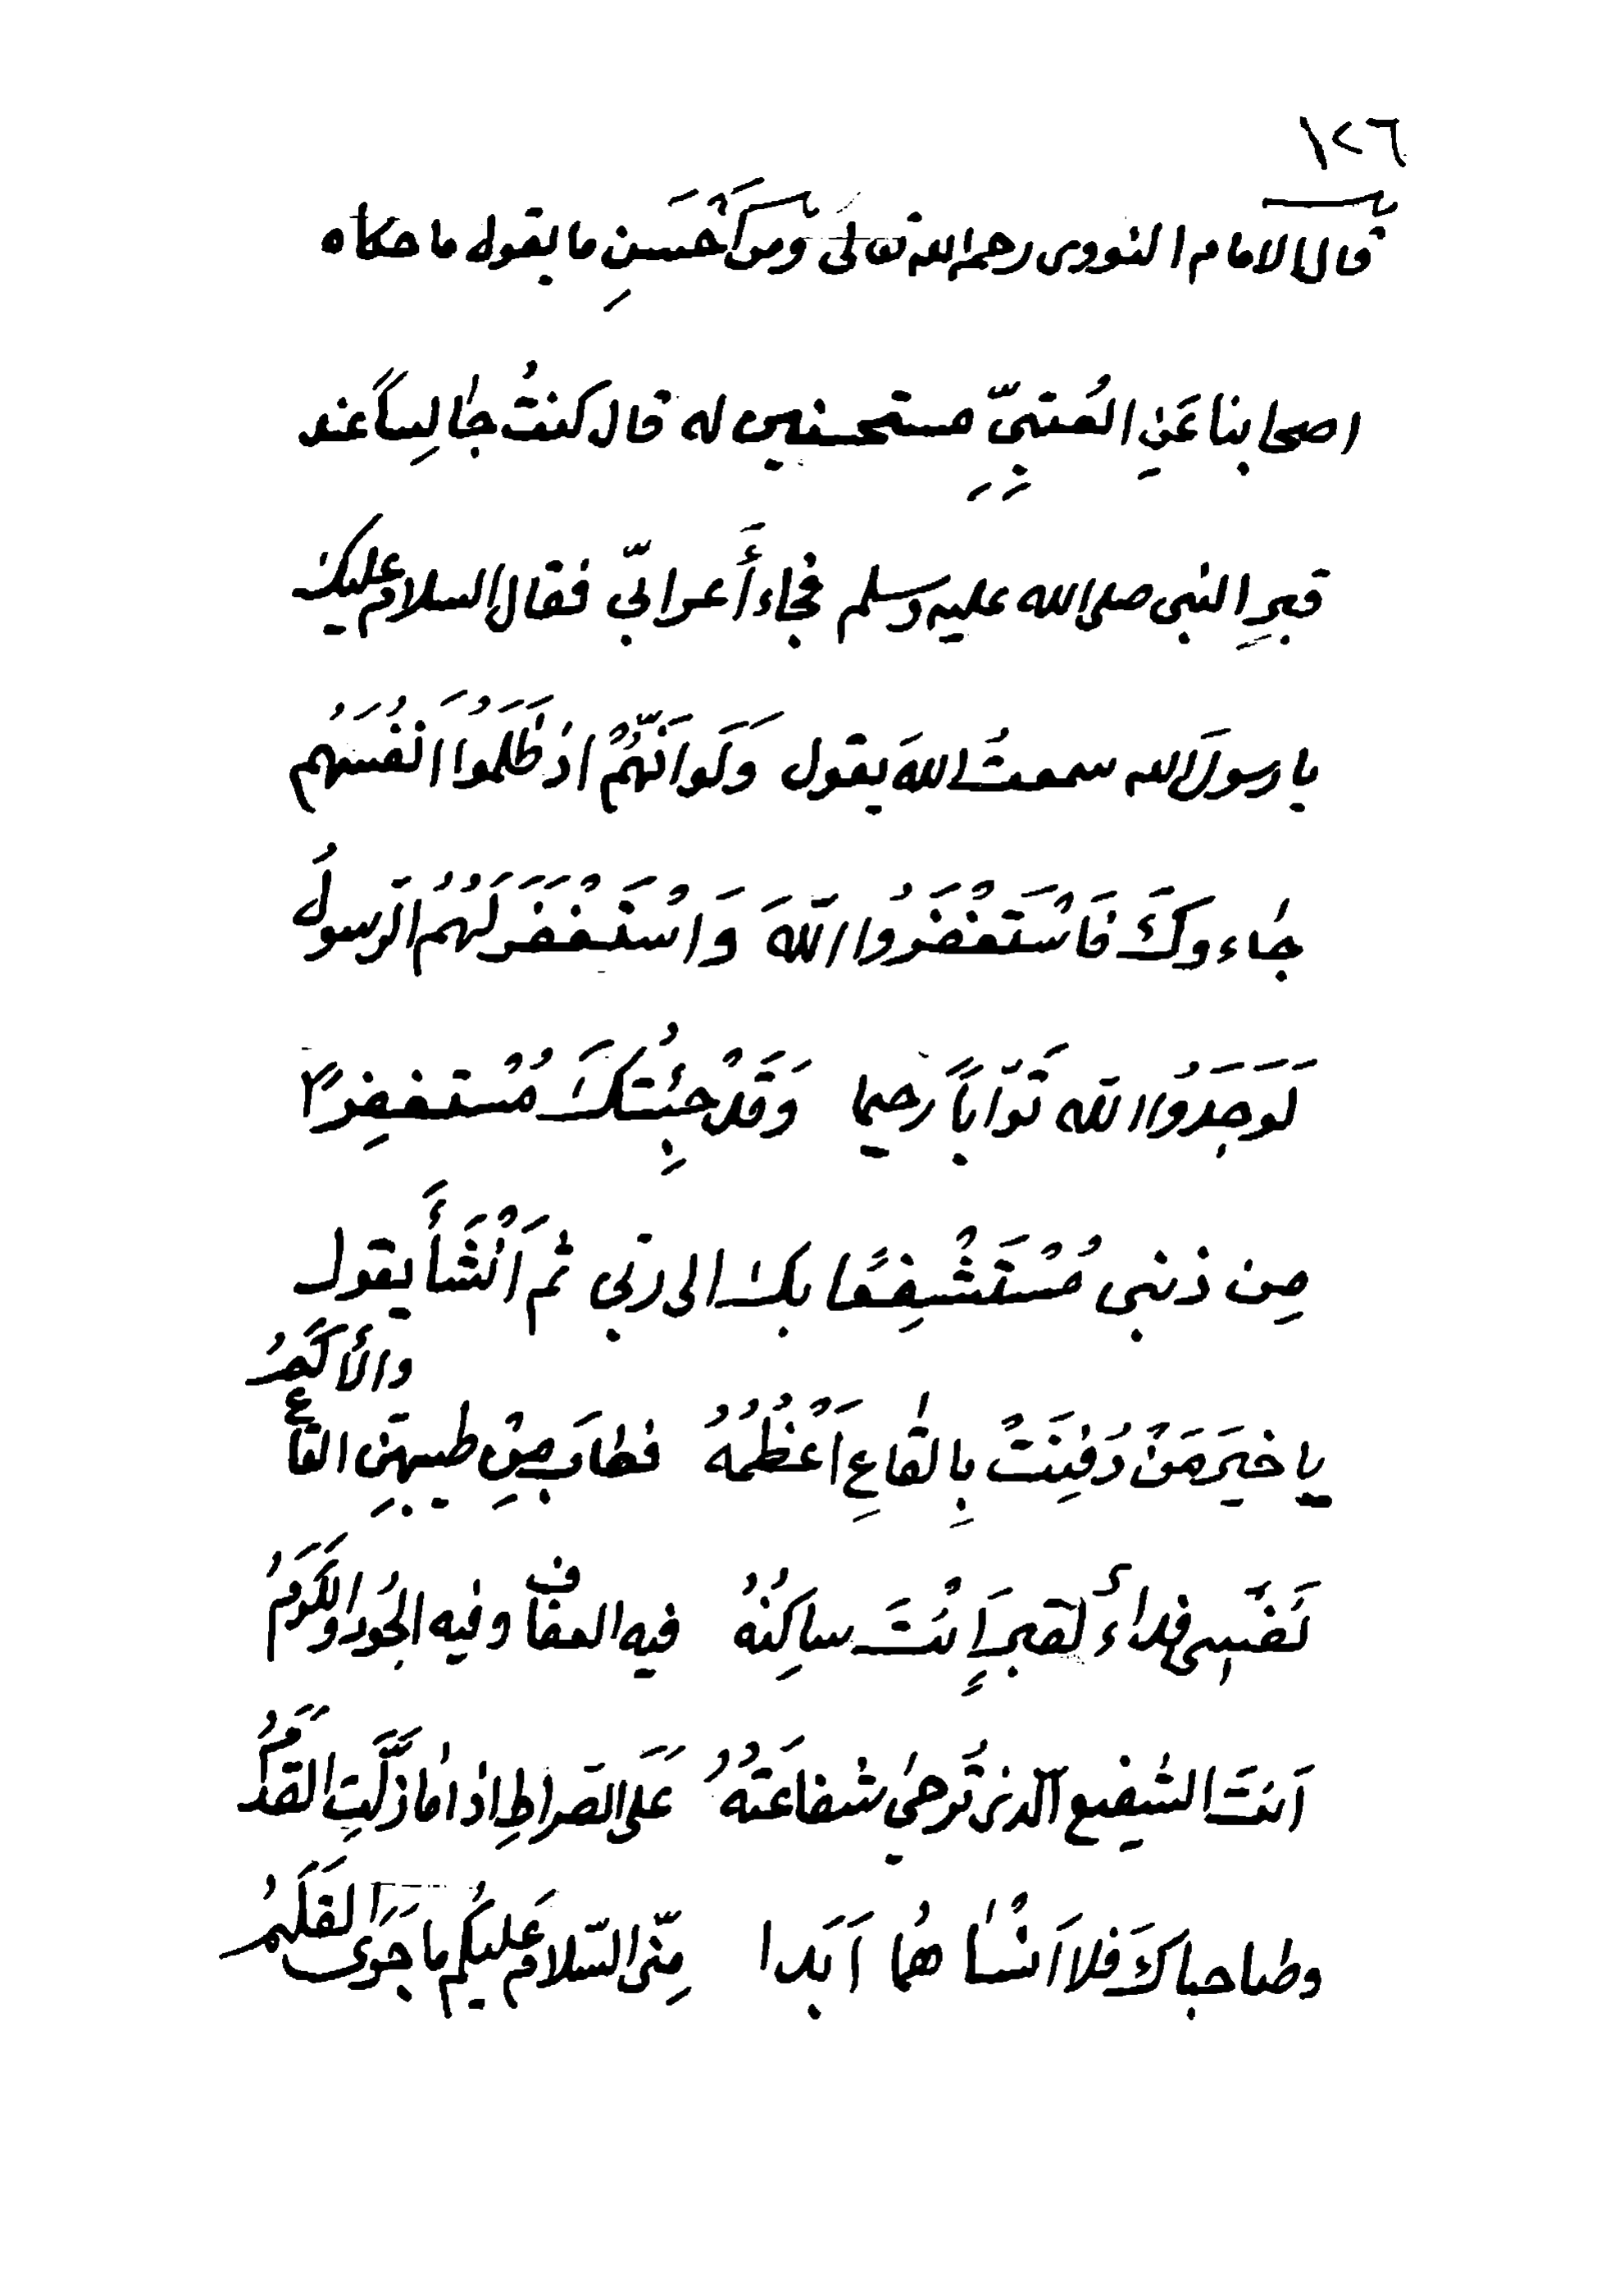 ١٢٦
قال الامام النووى رحمه الله تعالى ومن أَحْسَنِ ما يقوله ما حكاه
اصحابنا عَنِ العُتبِىِّ مستحسنين له قال كنتُ جالِساً عند
قبرِ النبى صلى الله عليه وسلم فجاء أَعرابىّ فقال السلام عليك
يا رسولَ الله سمعتُ اللهَ يقول وَلَو اَنَّهُمْ اذ ظَلَمُوا اَنفُسَهُم
جاءوكَ فَاسْتَغْفَرُوا اللّهَ وَاسْتَغْفَرَ لَهُمُ الرّسولُ
لَوَجَدُوا اللّه تَوّاباً رحيما وَقَدْ جِئْتُكَ مُسْتغفِراً
مِن ذنبى مُسْتَشْفِعًا بك الى ربّى ثم اَنْشَأَ يقول
يا خيرَ مَنْ دُفِنَتْ بِالقاعِ اَعْظُمُهُ فطابَ مِنْ طيبهِنِّ القاعُ والأكَمُ
نَفْسِى فداءٌ لقبرٍ اَنْتَ ساكِنُهُ فيه العفاف وفيه الجُود والكَرَمُ
اَنتَ الشفيع الّذى تُرجىٰ شفاعَتُهُ عَلَى الصّراطِ اذا ما زَلَّتِ القَدَمُ
وصاحباكَ فلا اَنْساهُما اَبَدا مِنّى السّلام عَليكُم ما جَرَى القَلَمُ